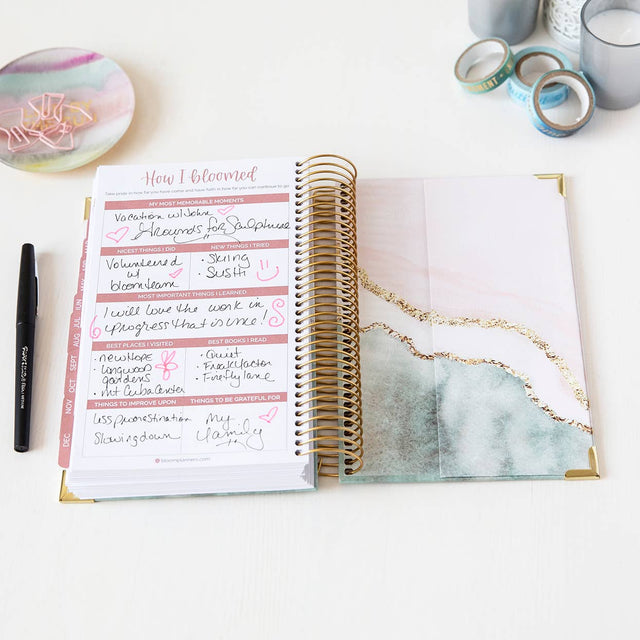 How I bloomed
Take pride in how far you have come and have faith in how far you can continue to go
MY MOST MEMORABLE MOMENTS
Vacation w/ John
Grounds for Sculpture
NICEST THINGS I DID
NEW THINGS I TRIED
Volunteered
w/
bloom team
• Skiing
• Sushi
MOST IMPORTANT THINGS I LEARNED
I will love the work in
progress that is me!
BEST PLACES VISITED
BEST BOOKS I READ
• New Hope
• Longwood
gardens
• Mt Cuba Center
• Quiet
• Freak Factor
• Firefly lane
THINGS TO IMPROVE UPON
THINGS TO BE GRATEFUL FOR
less procrastination
Slowing down
My
family
bloomplanners.com
JUN
JUL
AUG
SEPT
OCT
NOV
DEC